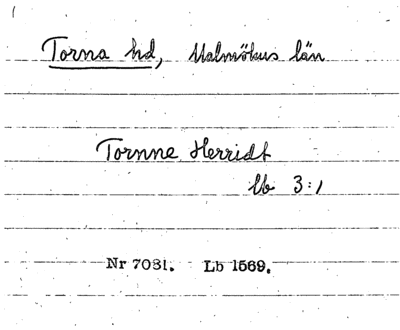 Torna hd, Malmöhus län
Tornne Herridt
lb 3:1
Nr 7031. Lb 1569.